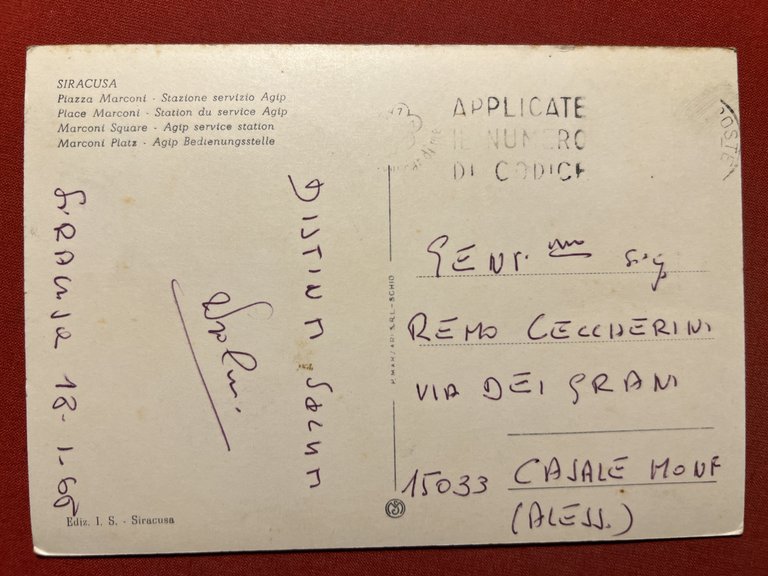 SIRACUSA
Piazza Marconi - Stazione servizio Agip
Place Marconi - Station du service Agip
Marconi Square - Agip service station
Marconi Platz - Agip Bedienungsstelle
APPLICATE
IL NUMERO
DI CODICE
POSTE
DISTINTI SALUTI
SIRACUSA 18-1-
GENT.mo Sig
REMO CECCHERINI
VIA DEI GRANI
15033 CASALE MONF
(ALESS.)
Ediz. I. S. - Siracusa